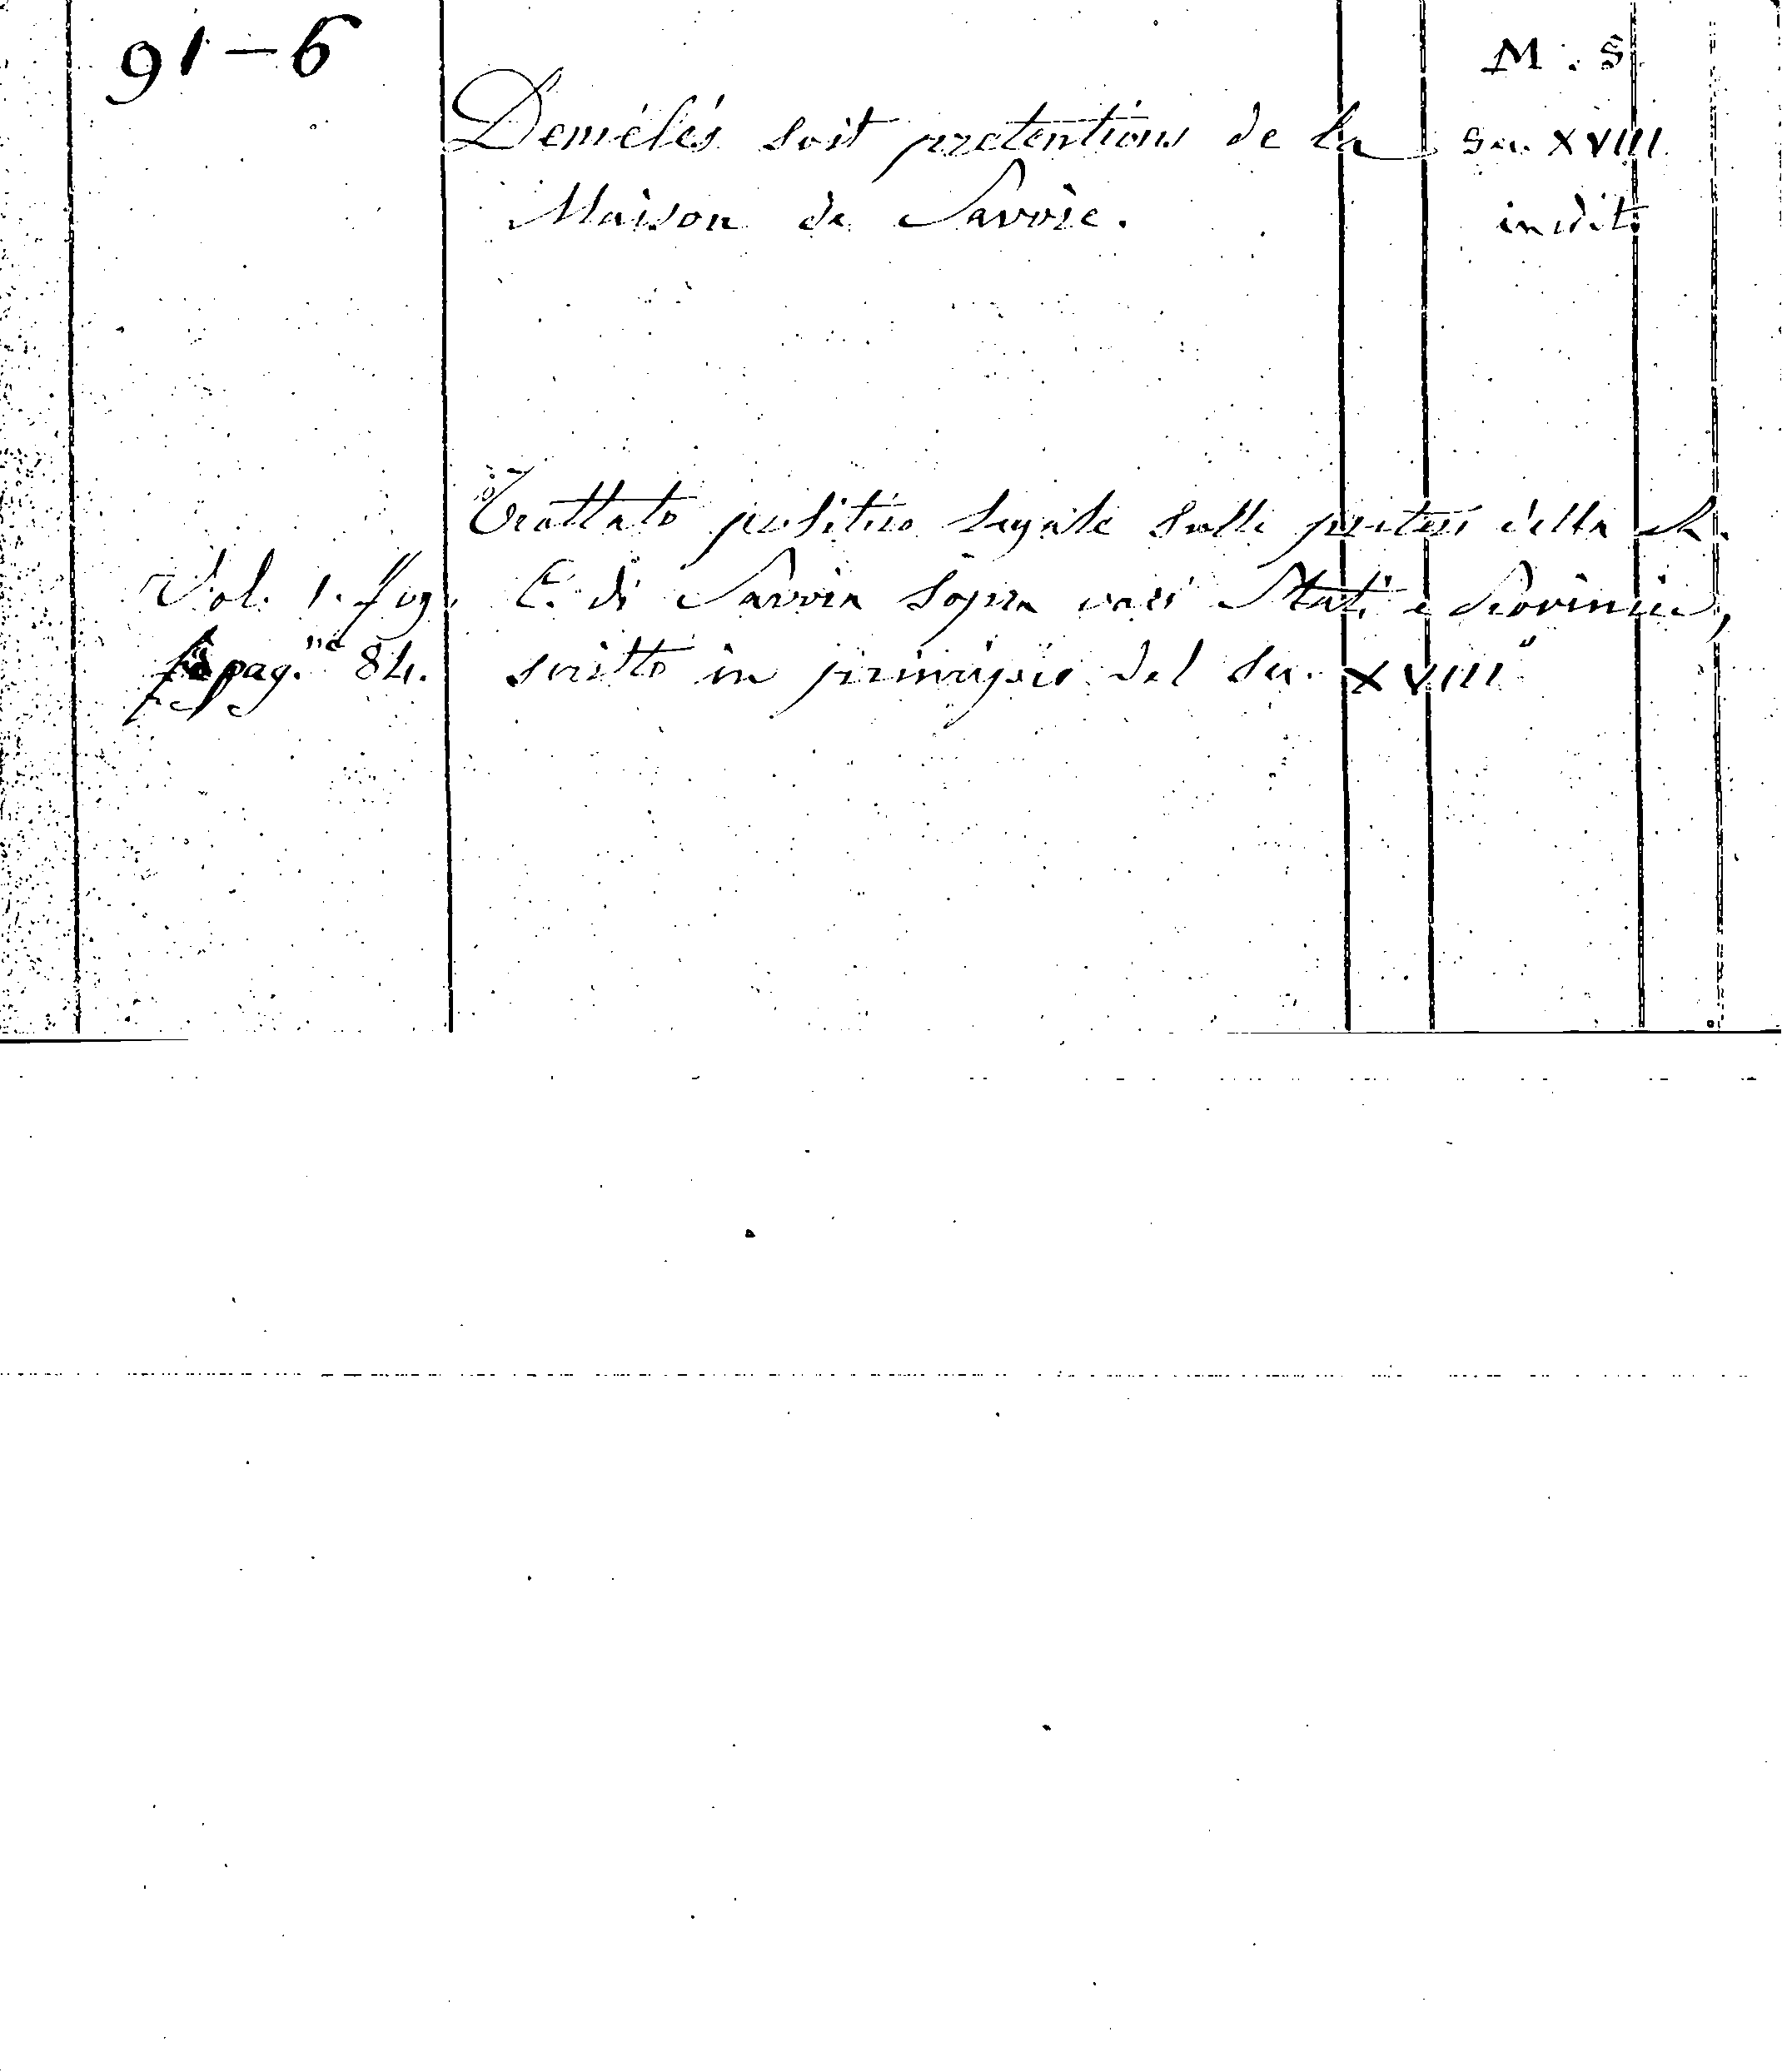 91-6
M. S.
Demélés soit pretentions de la
Sec. XVIII
Maison de Savoie.
inedit.
Trattato positivo legale sulle pretese della R.
Vol. 1. fog.
C. di Savoia sopra vari Stati e Provincie,
pag.ne 84.
scritto in principio del Sec. XVIII